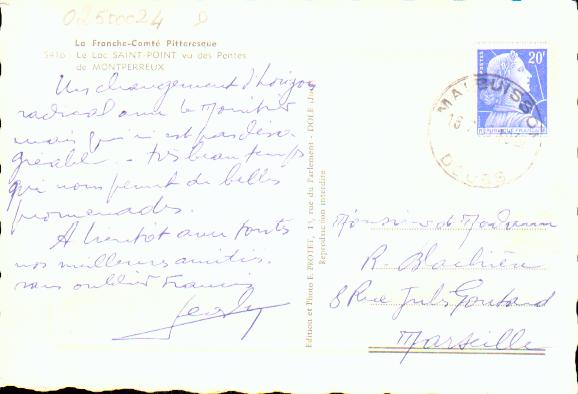 02500024
La Franche-Comté Pittoresque
5416 Le Lac SAINT-POINT vu des Pentes
de MONTPERREUX
Un changement d'horizon
radical avec le
mais qui n'est pas désa-
gréable - très beau temps
qui nous permet de belles
promenades.
A bientôt avec toutes
nos meilleures amitiés.
sans oublier
Edition et Photo E. PROTET, rue du Parlement - DOLE
Reproduction interdite
POSTES
20F
REPUBLIQUE FRANÇAISE
MALBUISSON
DOUBS
Monsieur et Madame
R.
8 Rue Jules
Marseille